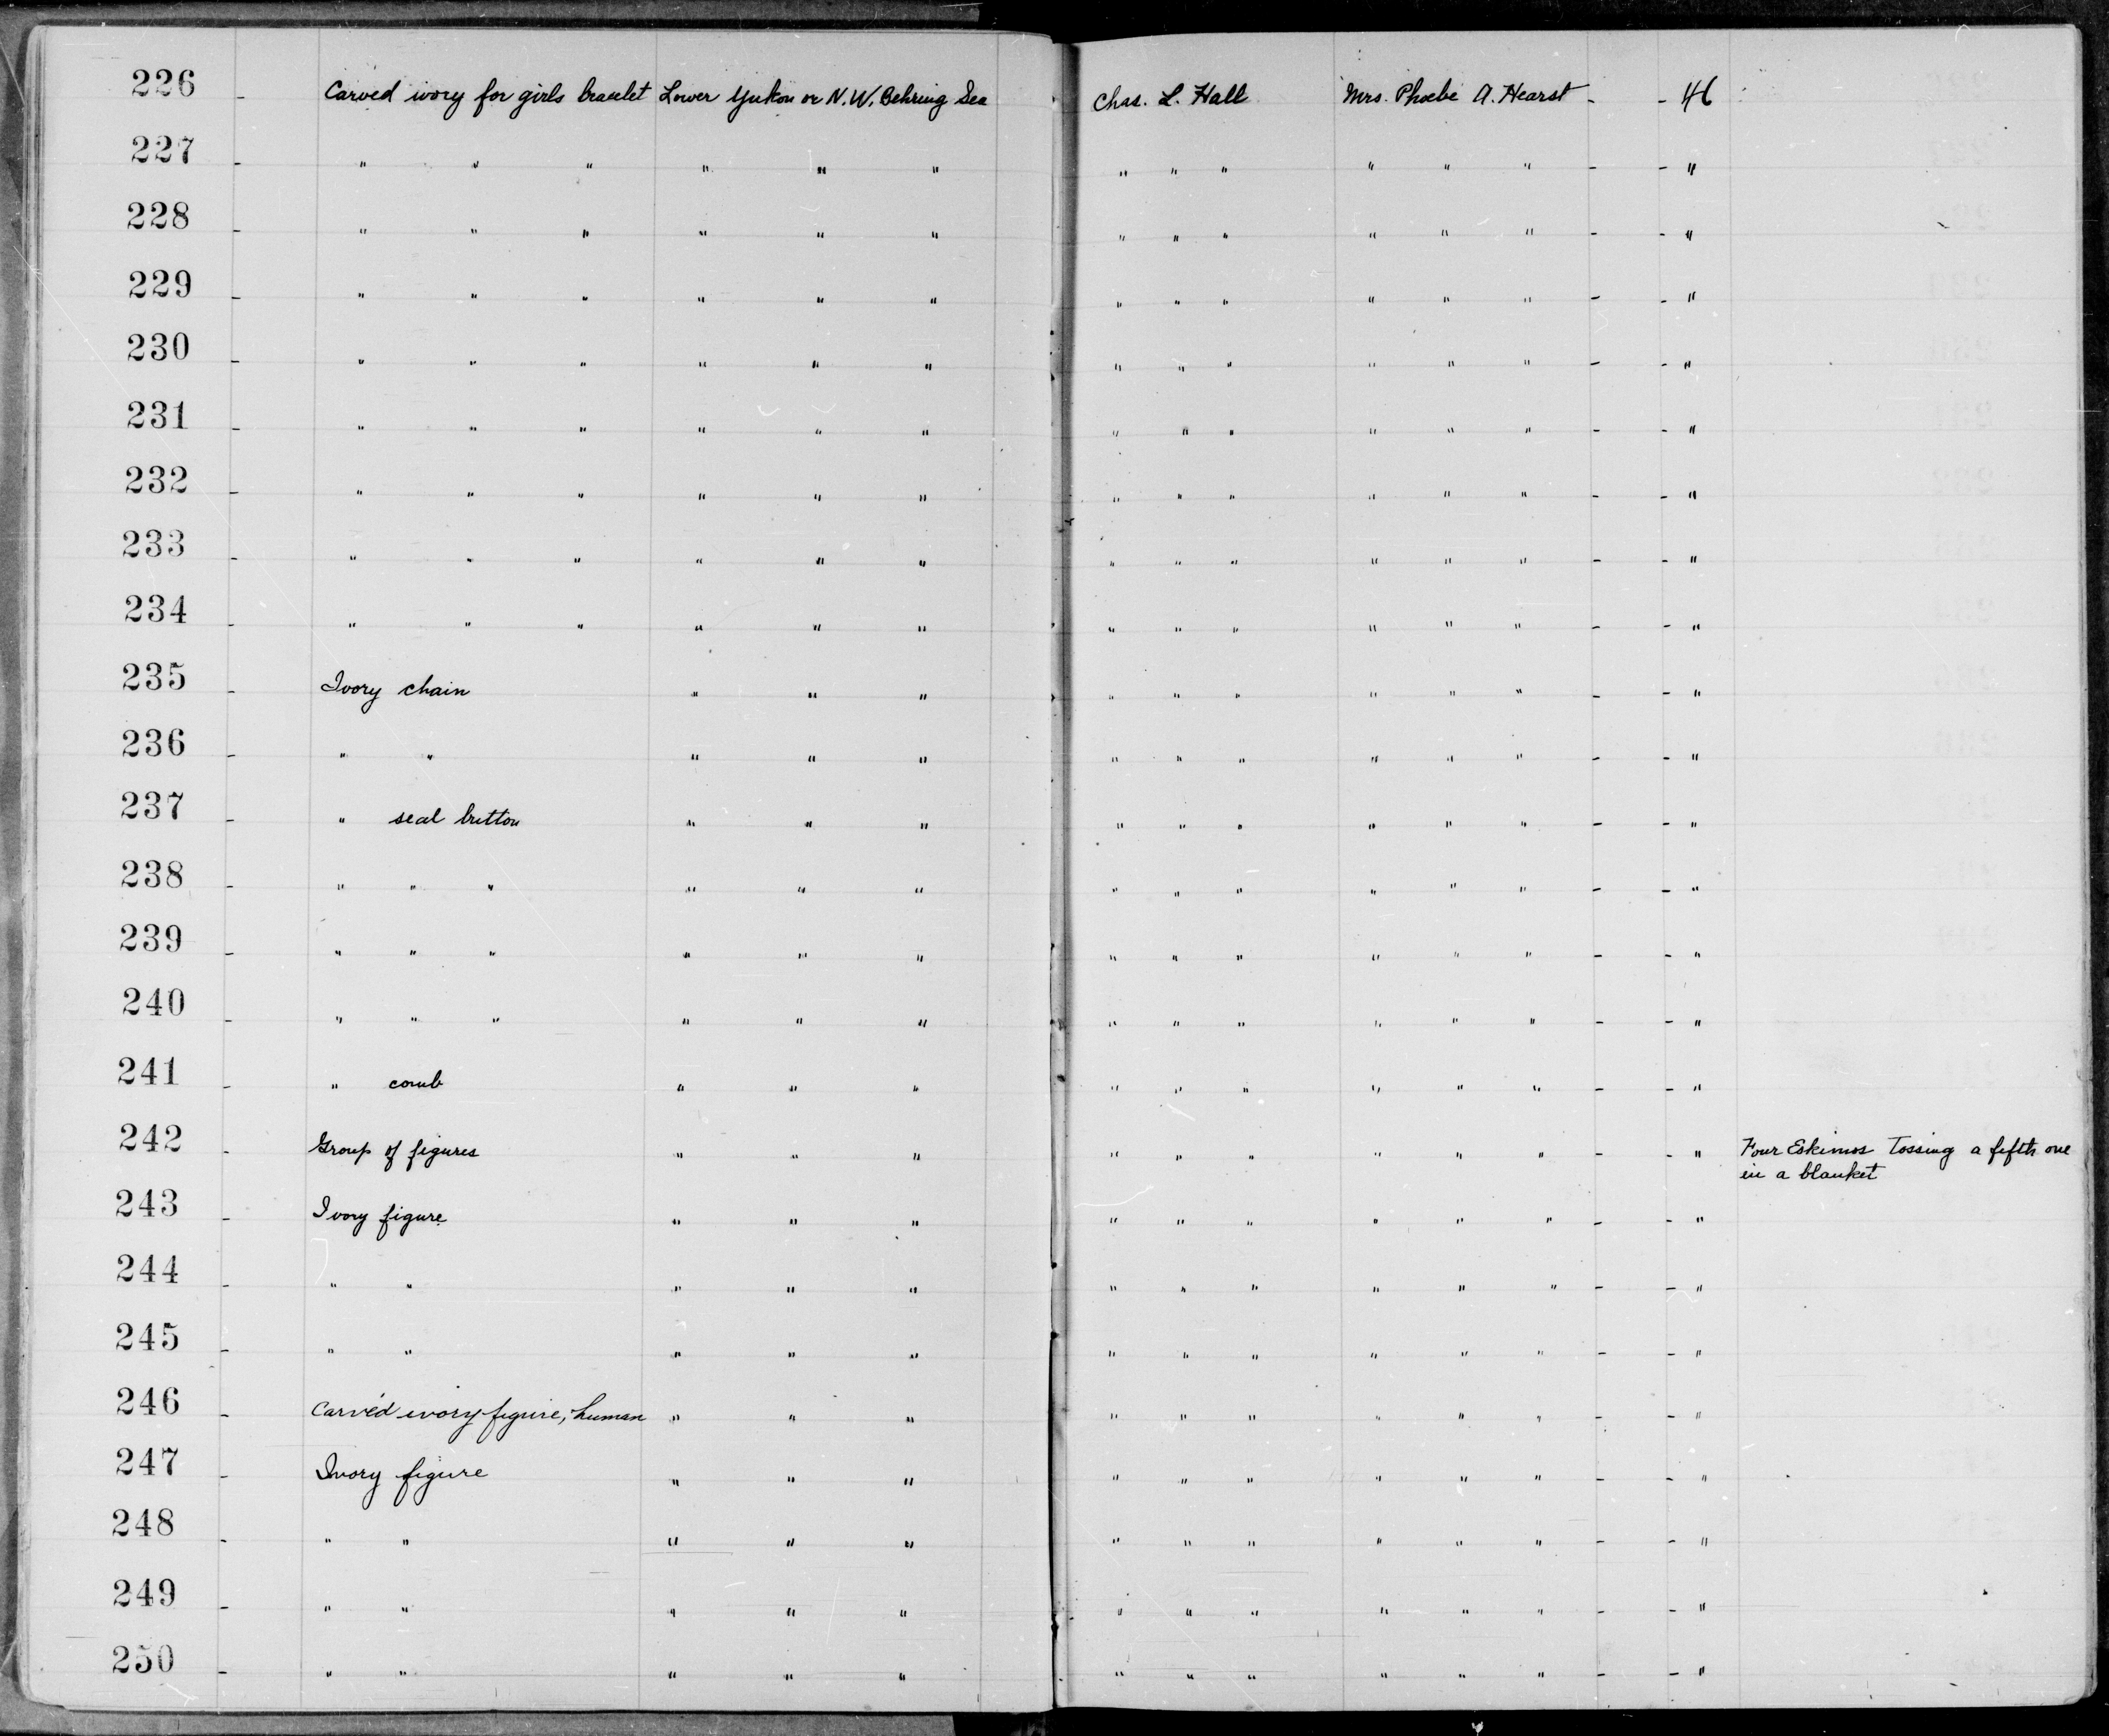 226 - Carved ivory for girls bracelet Lower Yukon or N.W. Behring Sea Chas. L. Hall Mrs. Phoebe A. Hearst - - 46
227 - " " " " " " " " " " " " - - "
228 - " " " " " " " " " " " " - - "
229 - " " " " " " " " " " " " - - "
230 - " " " " " " " " " " " " - - "
231 - " " " " " " " " " " " " - - "
232 - " " " " " " " " " " " " - - "
233 - " " " " " " " " " " " " - - "
234 - " " " " " " " " " " " " - - "
235 - Ivory chain " " " " " " " " " - - "
236 - " " " " " " " " " " " - - "
237 - " seal button " " " " " " " " " - - "
238 - " " " " " " " " " " " " - - "
239 - " " " " " " " " " " " " - - "
240 - " " " " " " " " " " " " - - "
241 - " comb " " " " " " " " " - - "
242 - Group of figures " " " " " " " " " - - " Four Eskimos Tossing a fifth one
in a blanket
243 - Ivory figure " " " " " " " " " - - "
244 - " " " " " " " " " " " - - "
245 - " " " " " " " " " " " - - "
246 - Carved ivory figure, human " " " " " " " " " - - "
247 - Ivory figure " " " " " " " " " - - "
248 - " " " " " " " " " " " - - "
249 - " " " " " " " " " " " - - "
250 - " " " " " " " " " " " - - "